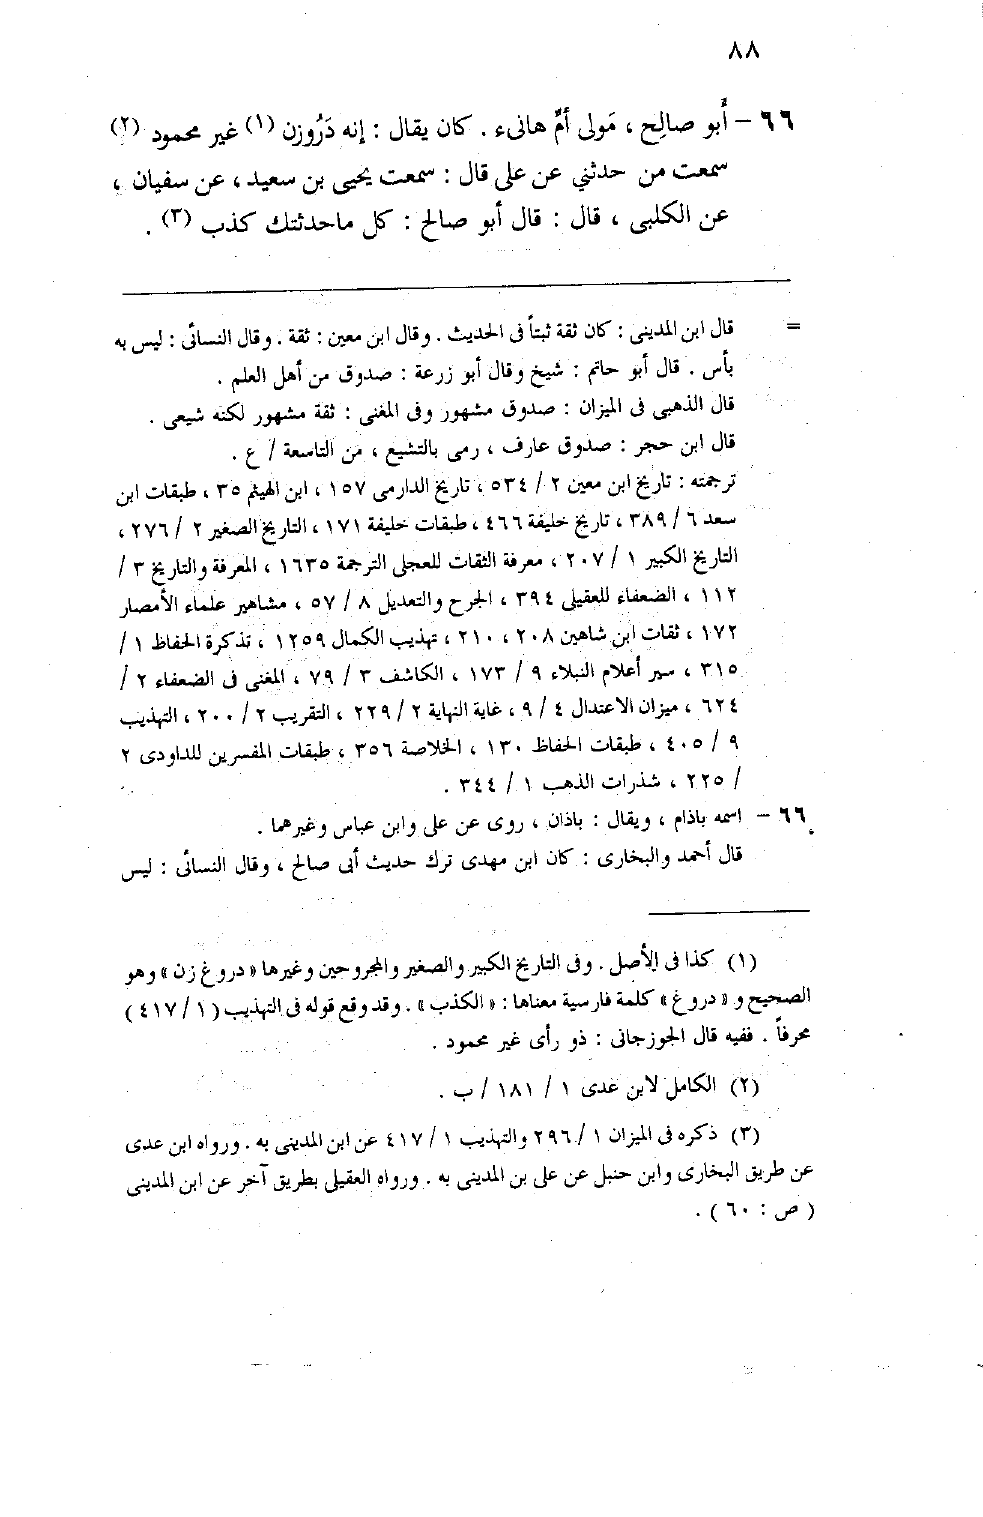 ٨٨
٦٦ – أبو صالح ، مَولى أمِّ هانىء . كان يقال : إنه دَرُوزن (١) غير محمود (٢)
سمعت من حدثني عن على قال : سمعت يحيى بن سعيد ، عن سفيان ،
عن الكلبى ، قال : قال أبو صالح : كل ماحدثتك كذب (٣) .
= قال ابن المدينى : كان ثقة ثبتاً فى الحديث . وقال ابن معين : ثقة . وقال النسائى : ليس به
بأس . قال أبو حاتم : شيخ وقال أبو زرعة : صدوق من أهل العلم .
قال الذهبى فى الميزان : صدوق مشهور وفى المغنى : ثقة مشهور لكنه شيعى .
قال ابن حجر : صدوق عارف ، رمى بالتشيع ، من التاسعة / ع .
ترجمته : تاريخ ابن معين ٢ / ٥٣٤ ، تاريخ الدارمى ١٥٧ ، ابن الهيثم ٣٥ ، طبقات ابن
سعد ٦ / ٣٨٩ ، تاريخ خليفة ٤٦٦ ، طبقات خليفة ١٧١ ، التاريخ الصغير ٢ / ٢٧٦ ،
التاريخ الكبير ١ / ٢٠٧ ، معرفة الثقات للعجلى الترجمة ١٦٣٥ ، المعرفة والتاريخ ٣ /
١١٢ ، الضعفاء للعقيلى ٣٩٤ ، الجرح والتعديل ٨ / ٥٧ ، مشاهير علماء الأمصار
١٧٢ ، ثقات ابن شاهين ٢٠٨ ، ٢١٠ ، تهذيب الكمال ١٢٥٩ ، تذكرة الحفاظ ١ /
٣١٥ ، سير أعلام النبلاء ٩ / ١٧٣ ، الكاشف ٣ / ٧٩ ، المغنى فى الضعفاء ٢ /
٦٢٤ ، ميزان الاعتدال ٤ / ٩ ، غاية النهاية ٢ / ٢٢٩ ، التقريب ٢ / ٢٠٠ ، التهذيب
٩ / ٤٠٥ ، طبقات الحفاظ ١٣٠ ، الخلاصة ٣٥٦ ، طبقات المفسرين للداودى ٢
/ ٢٢٥ ، شذرات الذهب ١ / ٣٤٤ .
٦٦ – اسمه باذام ، ويقال : باذان ، روى عن على وابن عباس وغيرهما .
قال أحمد والبخارى : كان ابن مهدى ترك حديث أبى صالح ، وقال النسائى : ليس
(١) كذا فى الأصل . وفى التاريخ الكبير والصغير والمجروحين وغيرها «دروغ زن» وهو
الصحيح و «دروغ» كلمة فارسية معناها : «الكذب» . وقد وقع قوله فى التهذيب (١ / ٤١٧)
محرفاً . ففيه قال الجوزجانى : ذو رأى غير محمود .
(٢) الكامل لابن عدى ١ / ١٨١ / ب .
(٣) ذكره فى الميزان ١ / ٢٩٦ والتهذيب ١ / ٤١٧ عن ابن المدينى به . ورواه ابن عدى
عن طريق البخارى وابن حنبل عن على بن المدينى به . ورواه العقيلى بطريق آخر عن ابن المدينى
( ص : ٦٠ ) .